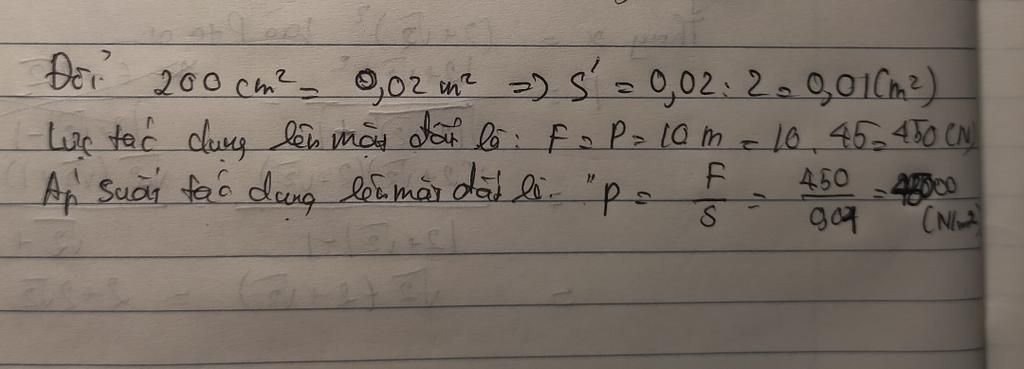 Đổi 200 cm² = 0,02 m² => S' = 0,02 : 2 = 0,01 (m²)
Lực tác dụng lên mặt đất là: F = P = 10 m = 10 . 45 = 450 (N)
Áp suất tác dụng lên mặt đất là: "p = F/S = 450/0,01 = 45000 (N/m²)